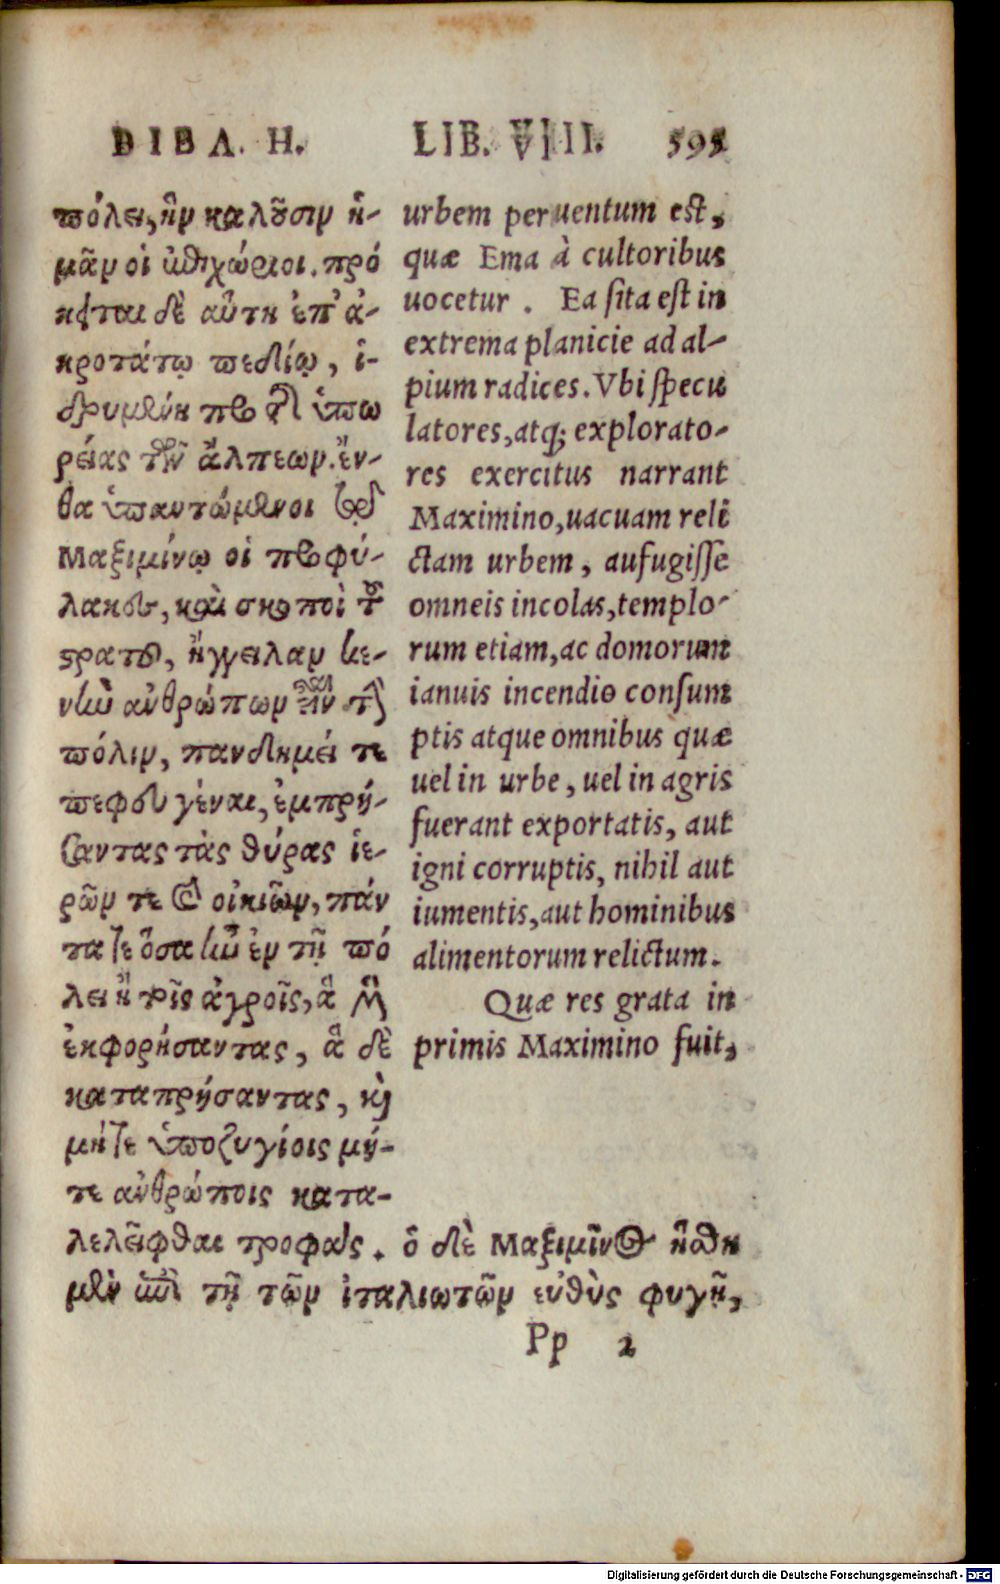 ΒΙΒΛ. Η.
πόλει, ἣν καλοῦσιν ἤ-
μαν οἱ ἐπιχώριοι. πρό
κειται δὲ αὕτη ἐπ' ἀ-
κροτάτῳ πεδίῳ, ἱ-
δρυμένη πρὸ τῆς ὑπω
ρείας τῶν ἄλπεων. ἔν-
θα ὑπαντώμενοι τῷ
Μαξιμίνῳ οἱ προφύ-
λακες, καὶ σκοποὶ τοῦ
στρατοῦ, ἤγγειλαν κε-
νὴν ἀνθρώπων εἶναι τὴν
πόλιν, πανδημεί τε
πεφευγέναι, ἐμπρή-
σαντας τὰς θύρας ἱε-
ρῶν τε καὶ οἰκιῶν, πάν
τα τε ὅσα ἦν ἐν τῇ πό
λει ἢ τοῖς ἀγροῖς, ἃ μὲν
ἐκφορήσαντας, ἃ δὲ
καταπρήσαντας, καὶ
μήτε ὑποζυγίοις μή-
τε ἀνθρώποις κατα-
λελεῖφθαι τροφάς. ὁ δὲ Μαξιμῖνος ἥσθη
μὲν ἐπὶ τῇ τῶν ἰταλιωτῶν εὐθὺς φυγῇ,
LIB. VIII. 595
urbem peruentum est,
quæ Ema à cultoribus
uocetur. Ea sita est in
extrema planicie ad al-
pium radices. Vbi specu
latores, atq; explorato-
res exercitus narrant
Maximino, uacuam reli
ctam urbem, aufugisse
omneis incolas, templo-
rum etiam, ac domorum
ianuis incendio consum
ptis atque omnibus quæ
uel in urbe, uel in agris
fuerant exportatis, aut
igni corruptis, nihil aut
iumentis, aut hominibus
alimentorum relictum.
Quæ res grata in
primis Maximino fuit,
Pp 2
Digitalisierung gefördert durch die Deutsche Forschungsgemeinschaft - DFG